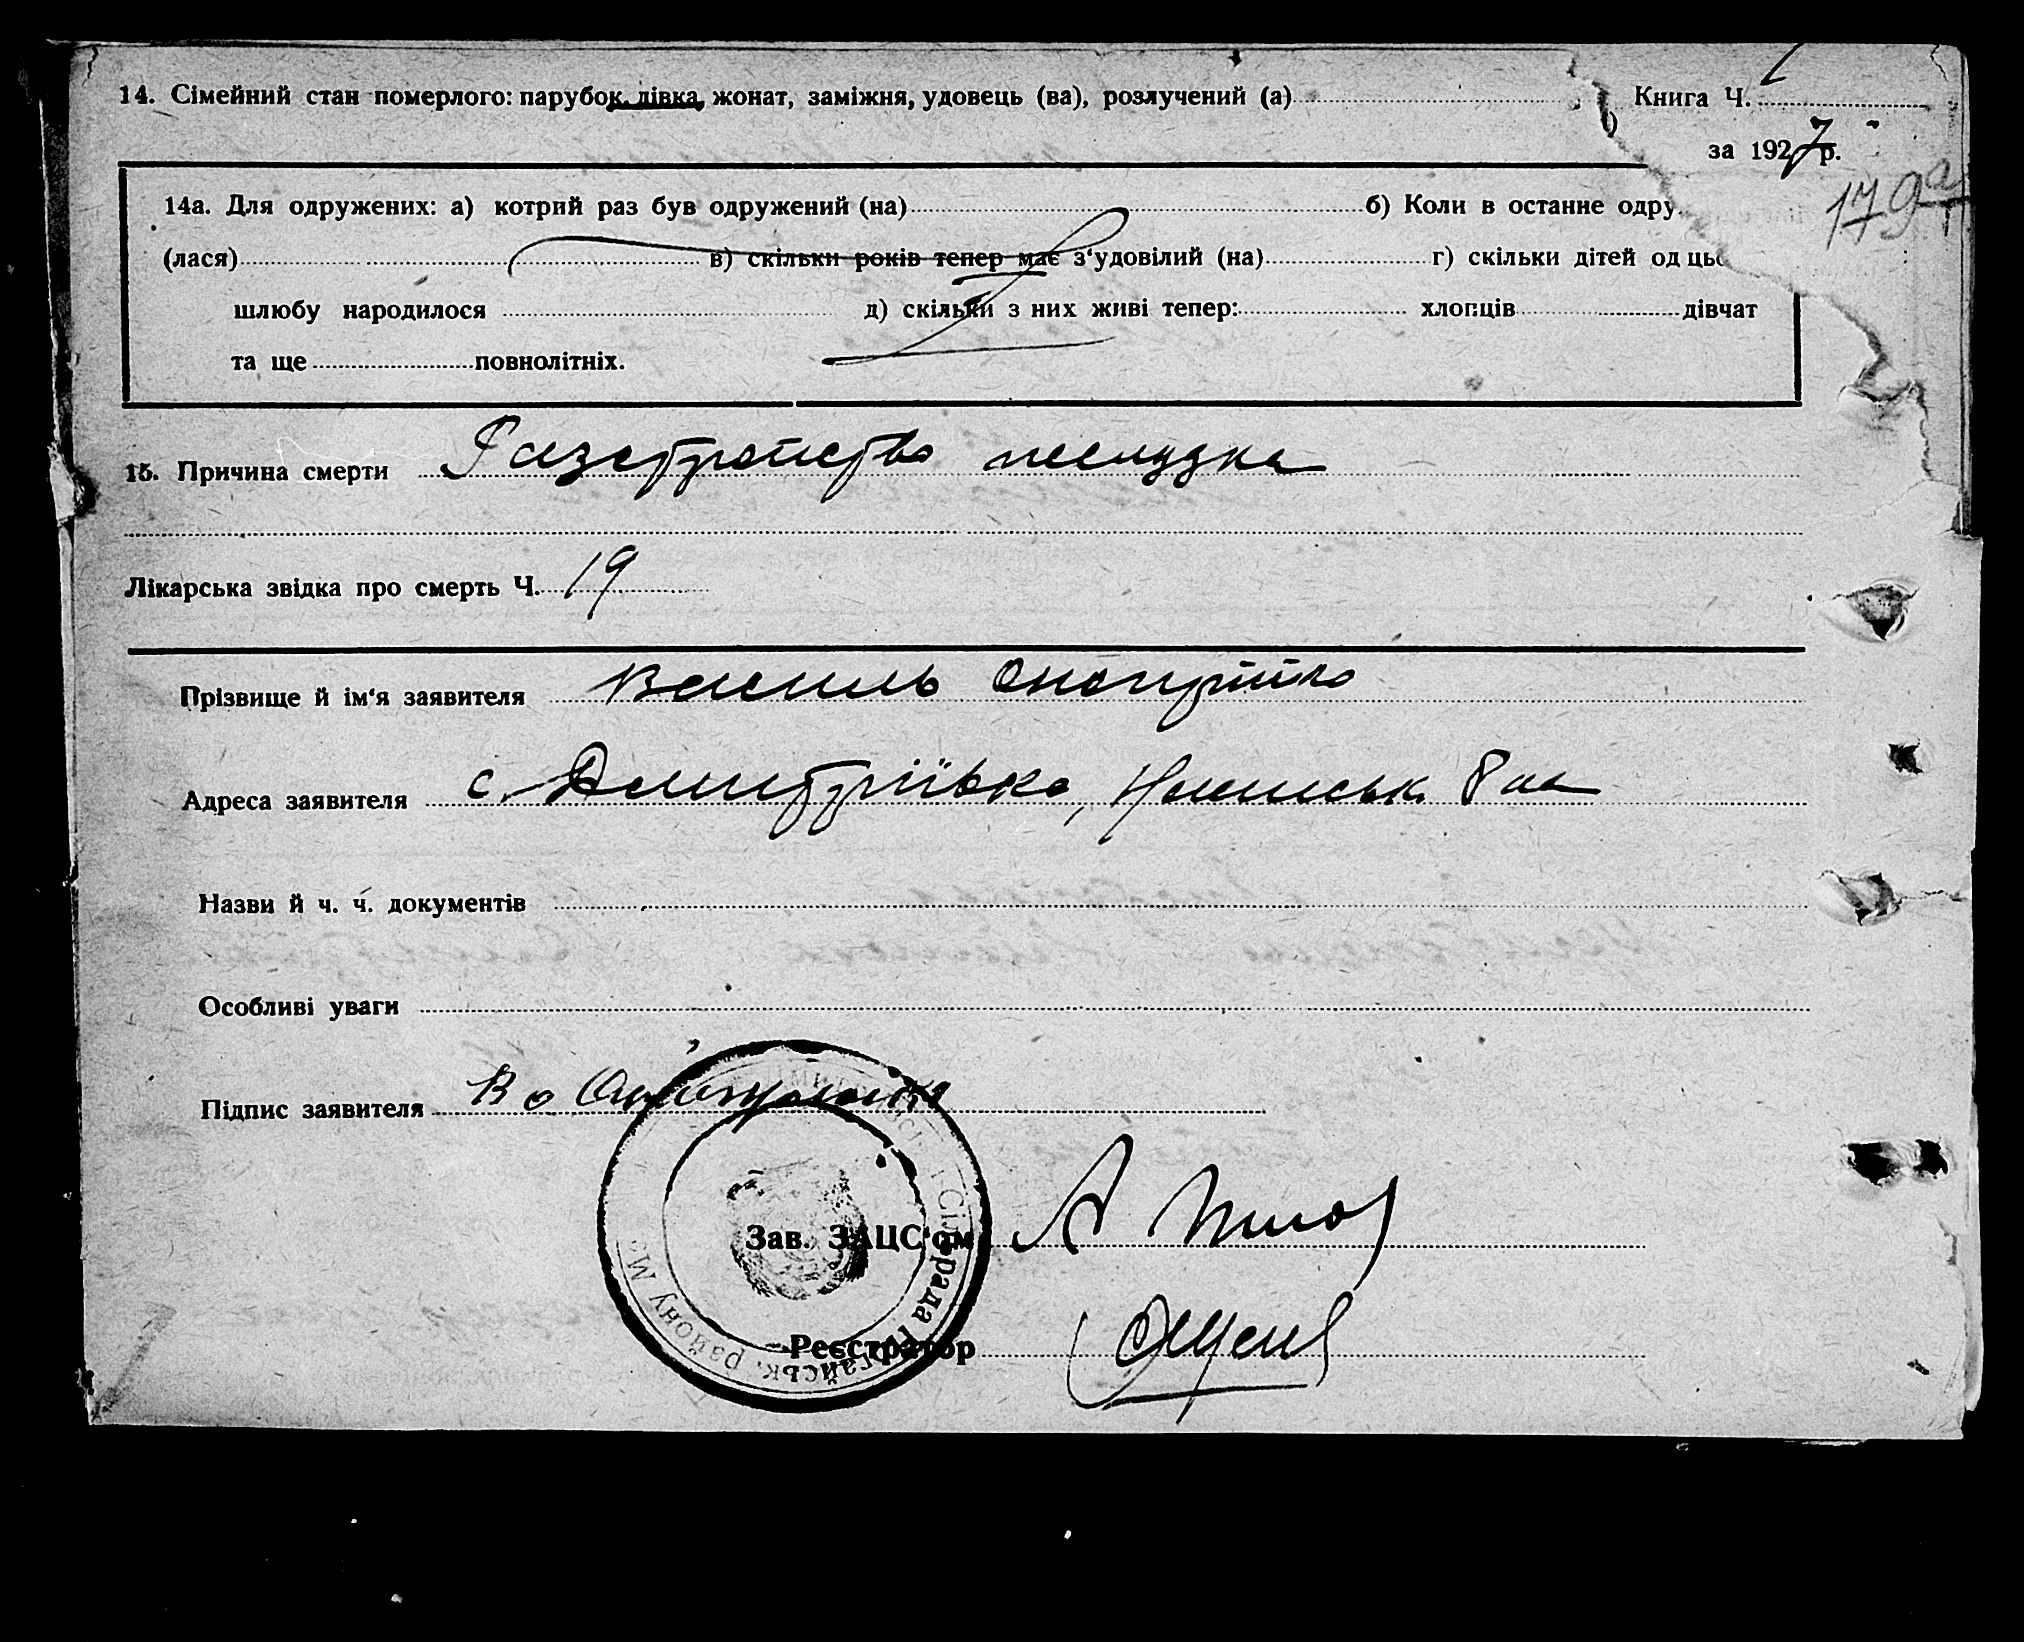 14. Сімейний стан померлого: парубок, дівка, жонат, заміжня, удовець (ва), розлучений (а)
Книга Ч.
за 1927 р.
179а
14а. Для одружених: а) котрий раз був одружений (на) б) Коли в останнє одру
(лася) в) скільки років тепер має з'удовілий (на) г) скільки дітей од
шлюбу народилося д) скільки з них живі тепер: хлопців дівчат
та ще повнолітніх.
15. Причина смерти Разстройство желудка
Лікарська звідка про смерть Ч. 19
Прізвище й ім'я заявителя Василь Онопрійко
Адреса заявителя с. Дмитріївка,
Назви й ч. ч. документів
Особливі уваги
Підпис заявителя
Зав. ЗАЦС'ом
Реєстратор
району